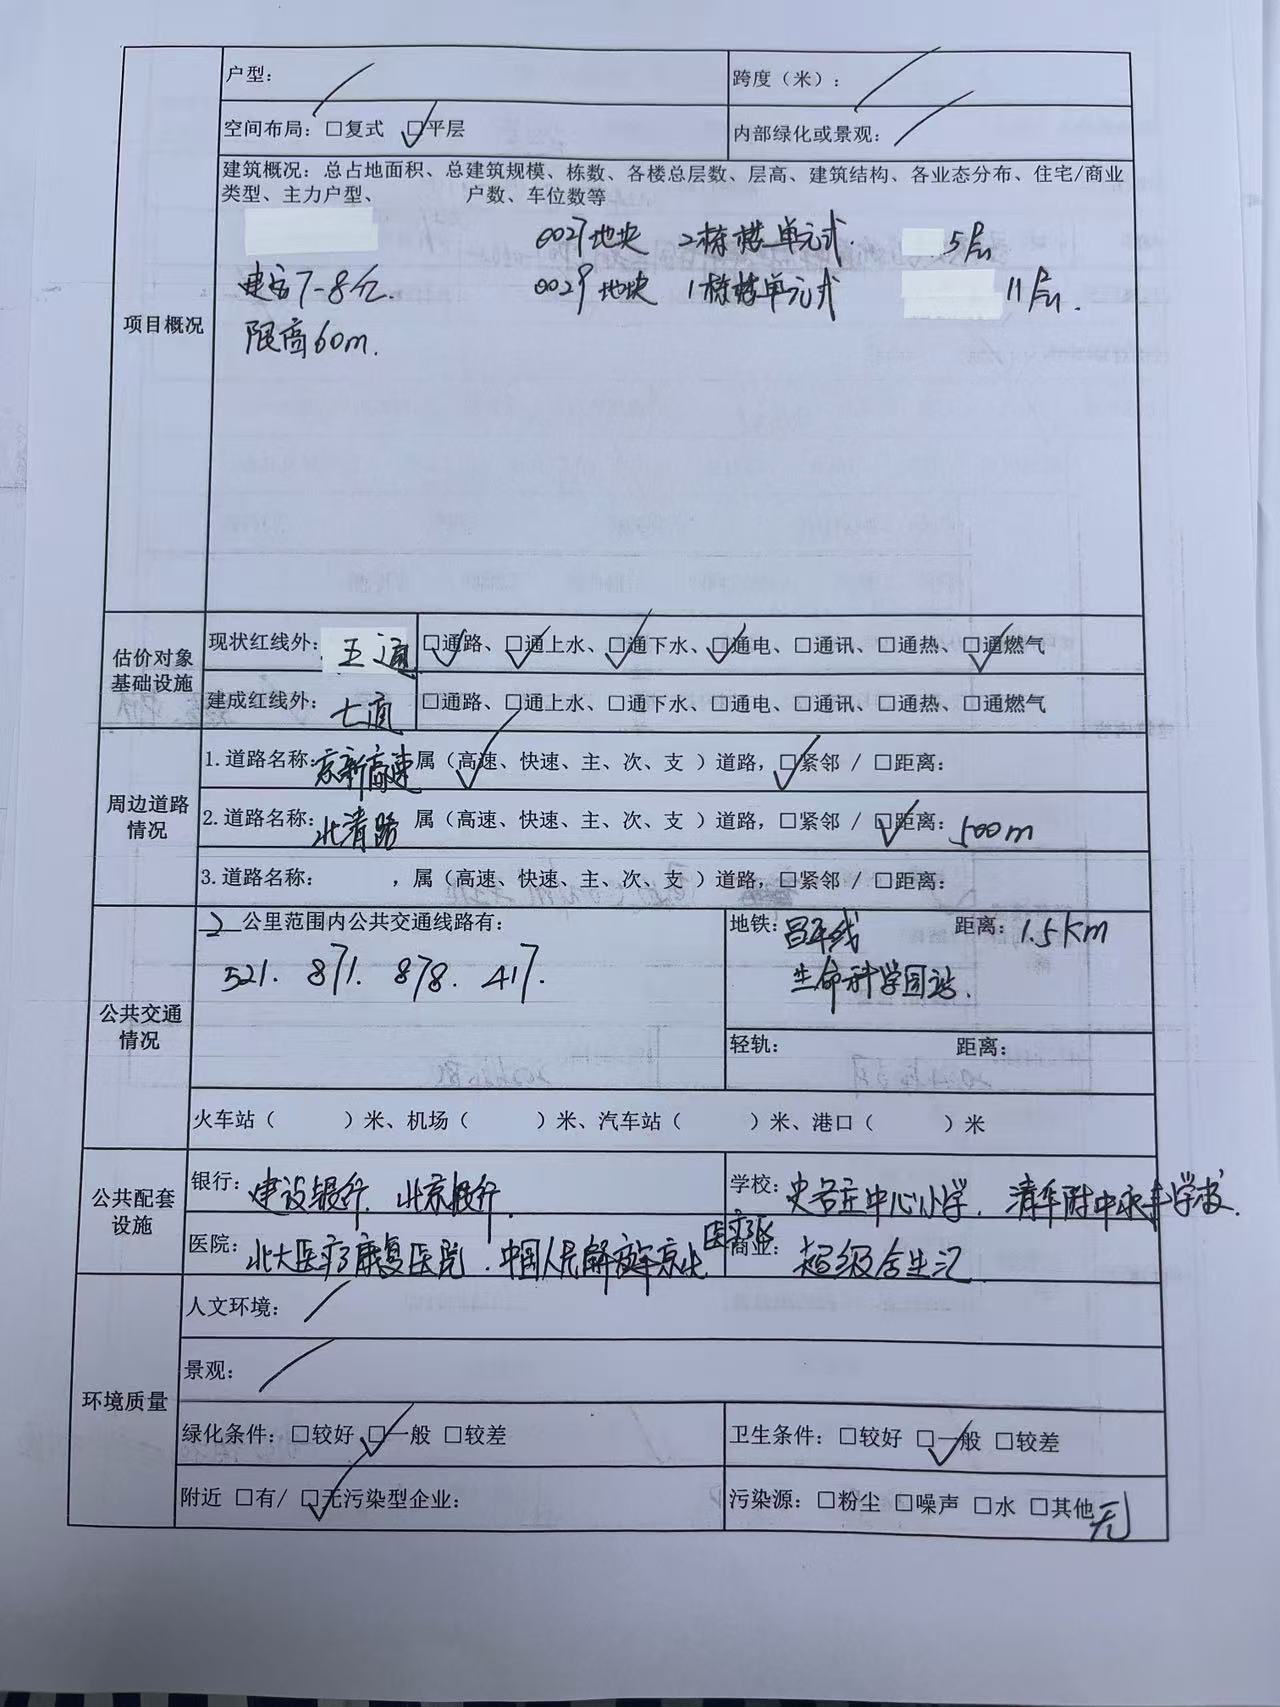 户型：
跨度（米）：
空间布局：□复式 ☑平层
内部绿化或景观：
项目概况
建筑概况：总占地面积、总建筑规模、栋数、各楼总层数、层高、建筑结构、各业态分布、住宅/商业
类型、主力户型、 户数、车位数等
0027地块 2栋楼单元式. 5层
7-8亿.
0029地块 1栋楼单元式 11层.
限高60m.
估价对象
基础设施
现状红线外：五通 ☑通路、☑通上水、☑通下水、☑通电、□通讯、□通热、☑通燃气
建成红线外：七通 □通路、□通上水、□通下水、□通电、□通讯、□通热、□通燃气
周边道路
情况
1.道路名称：京新高速 属（高速、快速、主、次、支 ）道路，☑紧邻 / □距离：
2.道路名称：北清路 属（高速、快速、主、次、支 ）道路，□紧邻 / ☑距离：500m
3.道路名称： ，属（高速、快速、主、次、支 ）道路，□紧邻 / □距离：
公共交通
情况
2 公里范围内公共交通线路有：
521. 871. 878. 417.
地铁：昌平线 距离：1.5km
生命科学园站.
轻轨： 距离：
火车站（ ）米、机场（ ）米、汽车站（ ）米、港口（ ）米
公共配套
设施
银行：建设银行. 北京银行.
学校：史各庄中心小学. 清华附中永丰学校.
医院：北大医疗康复医院. 中国人民解放军京北
医疗区
商业：超级合生汇
环境质量
人文环境：
景观：
绿化条件：□较好 ☑一般 □较差
卫生条件：□较好 ☑一般 □较差
附近 □有/ ☑无污染型企业：
污染源：□粉尘 □噪声 □水 □其他 无